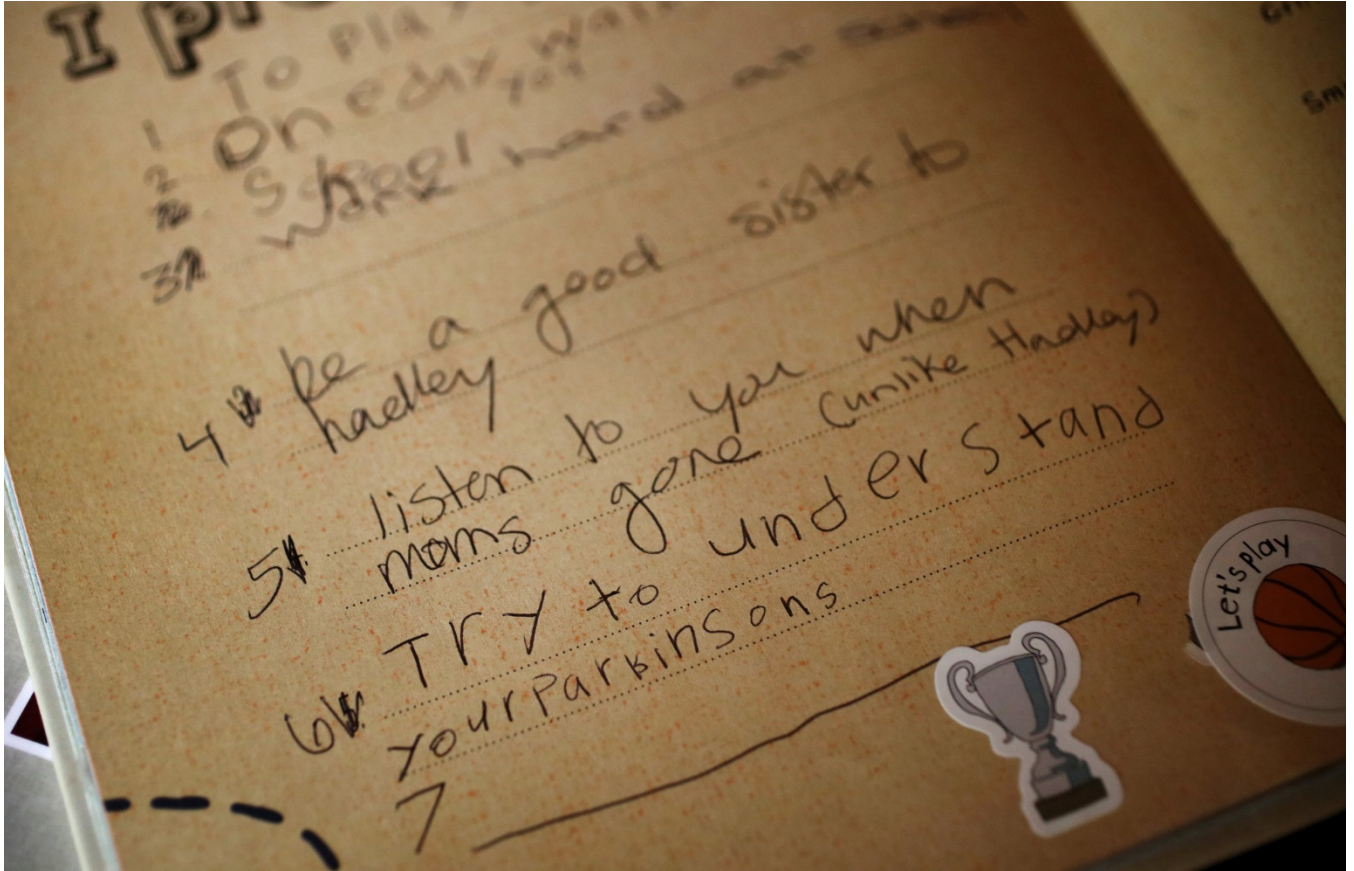 I pr
1 To play
2 One day walk
you
School
3 work hard at school
4 be a good sister to
hadley
5 listen to you when
moms gone (unlike Hadley)
6 Try to understand
your parkinsons
7
Let's play